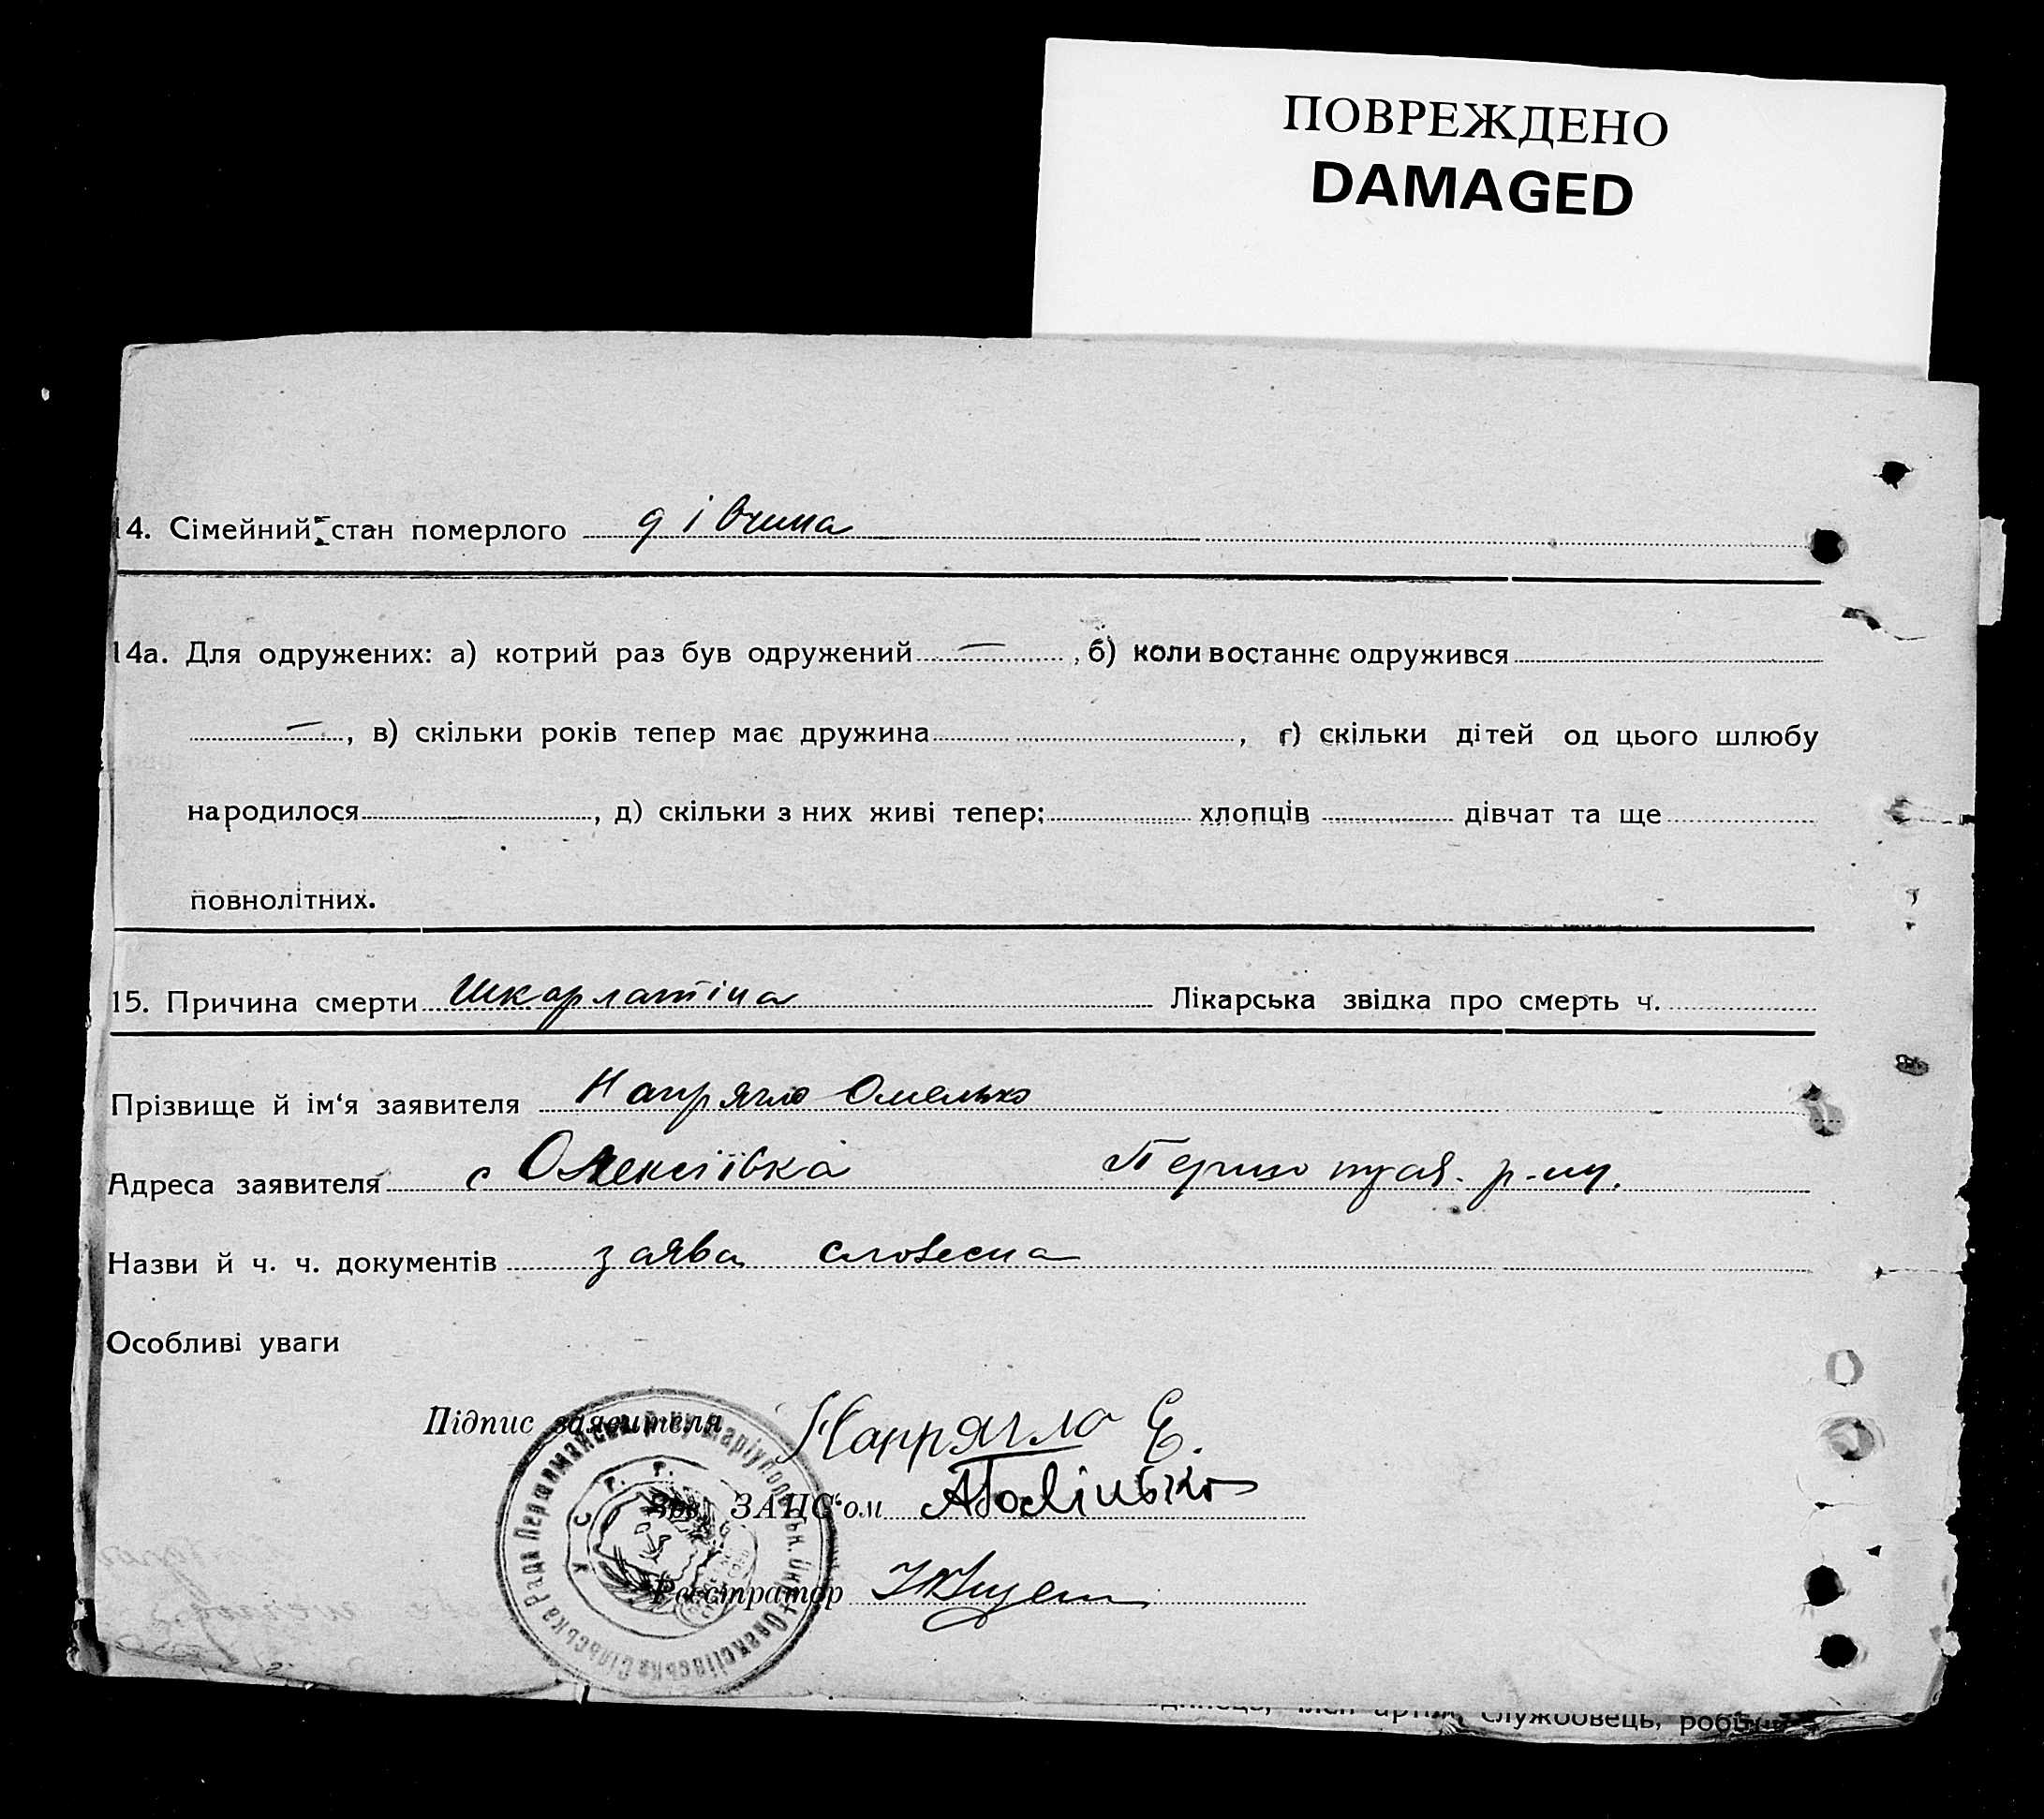 ПОВРЕЖДЕНО
DAMAGED
14. Сімейний стан померлого дівчина
14а. Для одружених: а) котрий раз був одружений — , б) коли востаннє одружився
— , в) скільки років тепер має дружина , г) скільки дітей од цього шлюбу
народилося , д) скільки з них живі тепер; хлопців дівчат та ще
повнолітних.
15. Причина смерти Шкарлатіна Лікарська звідка про смерть ч.
Прізвище й ім‘я заявителя Напрягло Омелько
Адреса заявителя с Олексіївка Першо р-ну.
Назви й ч. ч. документів заява словесна
Особливі уваги
Підпис заявителя Напрягло Е.
Зав. ЗАПС‘ом
Реєстратор
У С Р Р
Олексіївська Сільська Рада Першоманс
службовець,